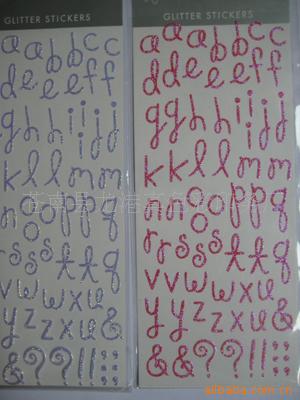 GLITTER STICKERS
a a b b c c
d e e f f
g g h h i i j j
k l l m m
n o o p p q
r s s s t t q
u v w x u
y z z x u
& ? ? ! ! : ;
GLITTER STICKERS
a a b b c c
d d e e f f
g g h h i i j j
k k l l m m
n n o o p p q
r r s s s t t q
u v v w w x u
y y z z x u
& & ? ? ! ! : ;
苍南县龙港
alibaba.com.cn